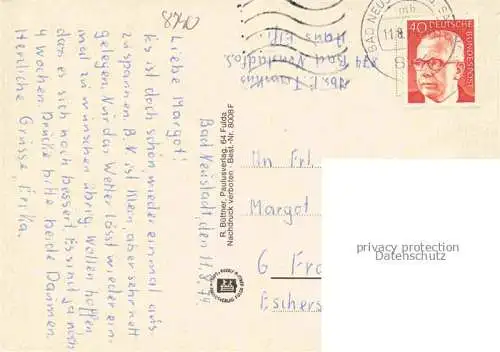 CH28
Bad Neustadt, den 11.8.74
Liebe Margot!
Es ist doch schön wieder einmal aus-
zuspannen. B.N. ist klein, aber sehr nett
gelegen. Nur das Wetter lässt wieder ein-
mal zu wünschen übrig. Wollen hoffen,
dass es sich noch bessert. Es sind ja noch
4 Wochen. Drücke bitte beide Daumen.
Herzliche Grüsse, Erika.
R. Büttner, Paulusverlag, 64 Fulda
Nachdruck verboten · Best.-Nr. 8008 F
Abs. E.
874 Bad Neustadt/S.
Haus
BAD NEUS
11.8.
40
DEUTSCHE BUNDESPOST
An Frl.
Margot
6 Fra
Eschers
privacy protection
Memoria